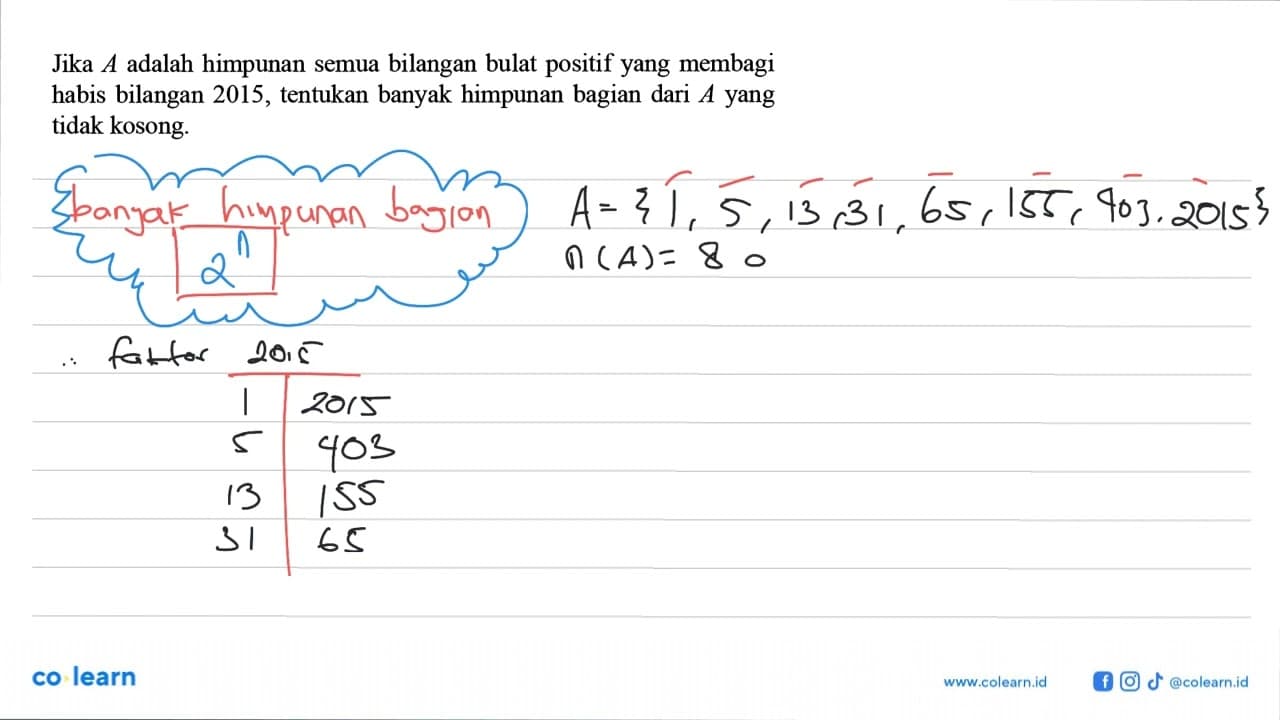 Jika A adalah himpunan semua bilangan bulat positif yang membagi
habis bilangan 2015, tentukan banyak himpunan bagian dari A yang
tidak kosong.
banyak himpunan bagian
2ⁿ
A = { 1, 5, 13, 31, 65, 155, 403. 2015}
n(A) = 8 o
∴ faktor 2015
1 2015
5 403
13 155
31 65
co learn
www.colearn.id
@colearn.id